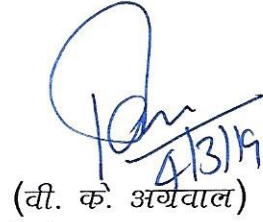 4/3/19
(वी. के. अग्रवाल)